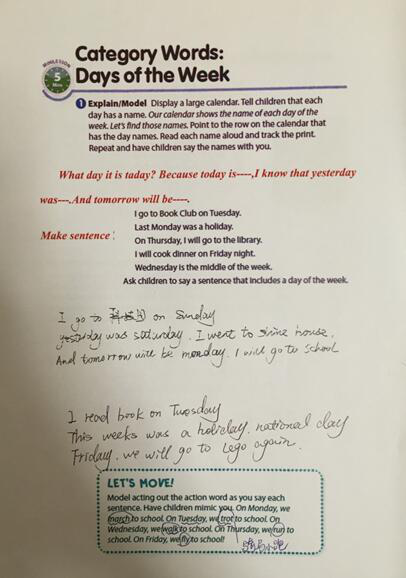 MINILESSON
5
Mins
Category Words:
Days of the Week
1 Explain/Model Display a large calendar. Tell children that each
day has a name. Our calendar shows the name of each day of the
week. Let's find those names. Point to the row on the calendar that
has the day names. Read each name aloud and track the print.
Repeat and have children say the names with you.
What day it is taday? Because today is----,I know that yesterday
was---.And tomorrow will be----.
I go to Book Club on Tuesday.
Last Monday was a holiday.
Make sentence:
On Thursday, I will go to the library.
I will cook dinner on Friday night.
Wednesday is the middle of the week.
Ask children to say a sentence that includes a day of the week.
I go to on Sunday
yesterday was saturday. I went to house.
And tomorrow will be monday. I will go to school
I read book on Tuesday
This weeks was a holiday. national day
Friday. we will go to Lego again.
LET'S MOVE!
Model acting out the action word as you say each
sentence. Have children mimic you. On Monday, we
march to school. On Tuesday, we trot to school. On
Wednesday, we walk to school. On Thursday, we run to
school. On Friday, we fly to school!